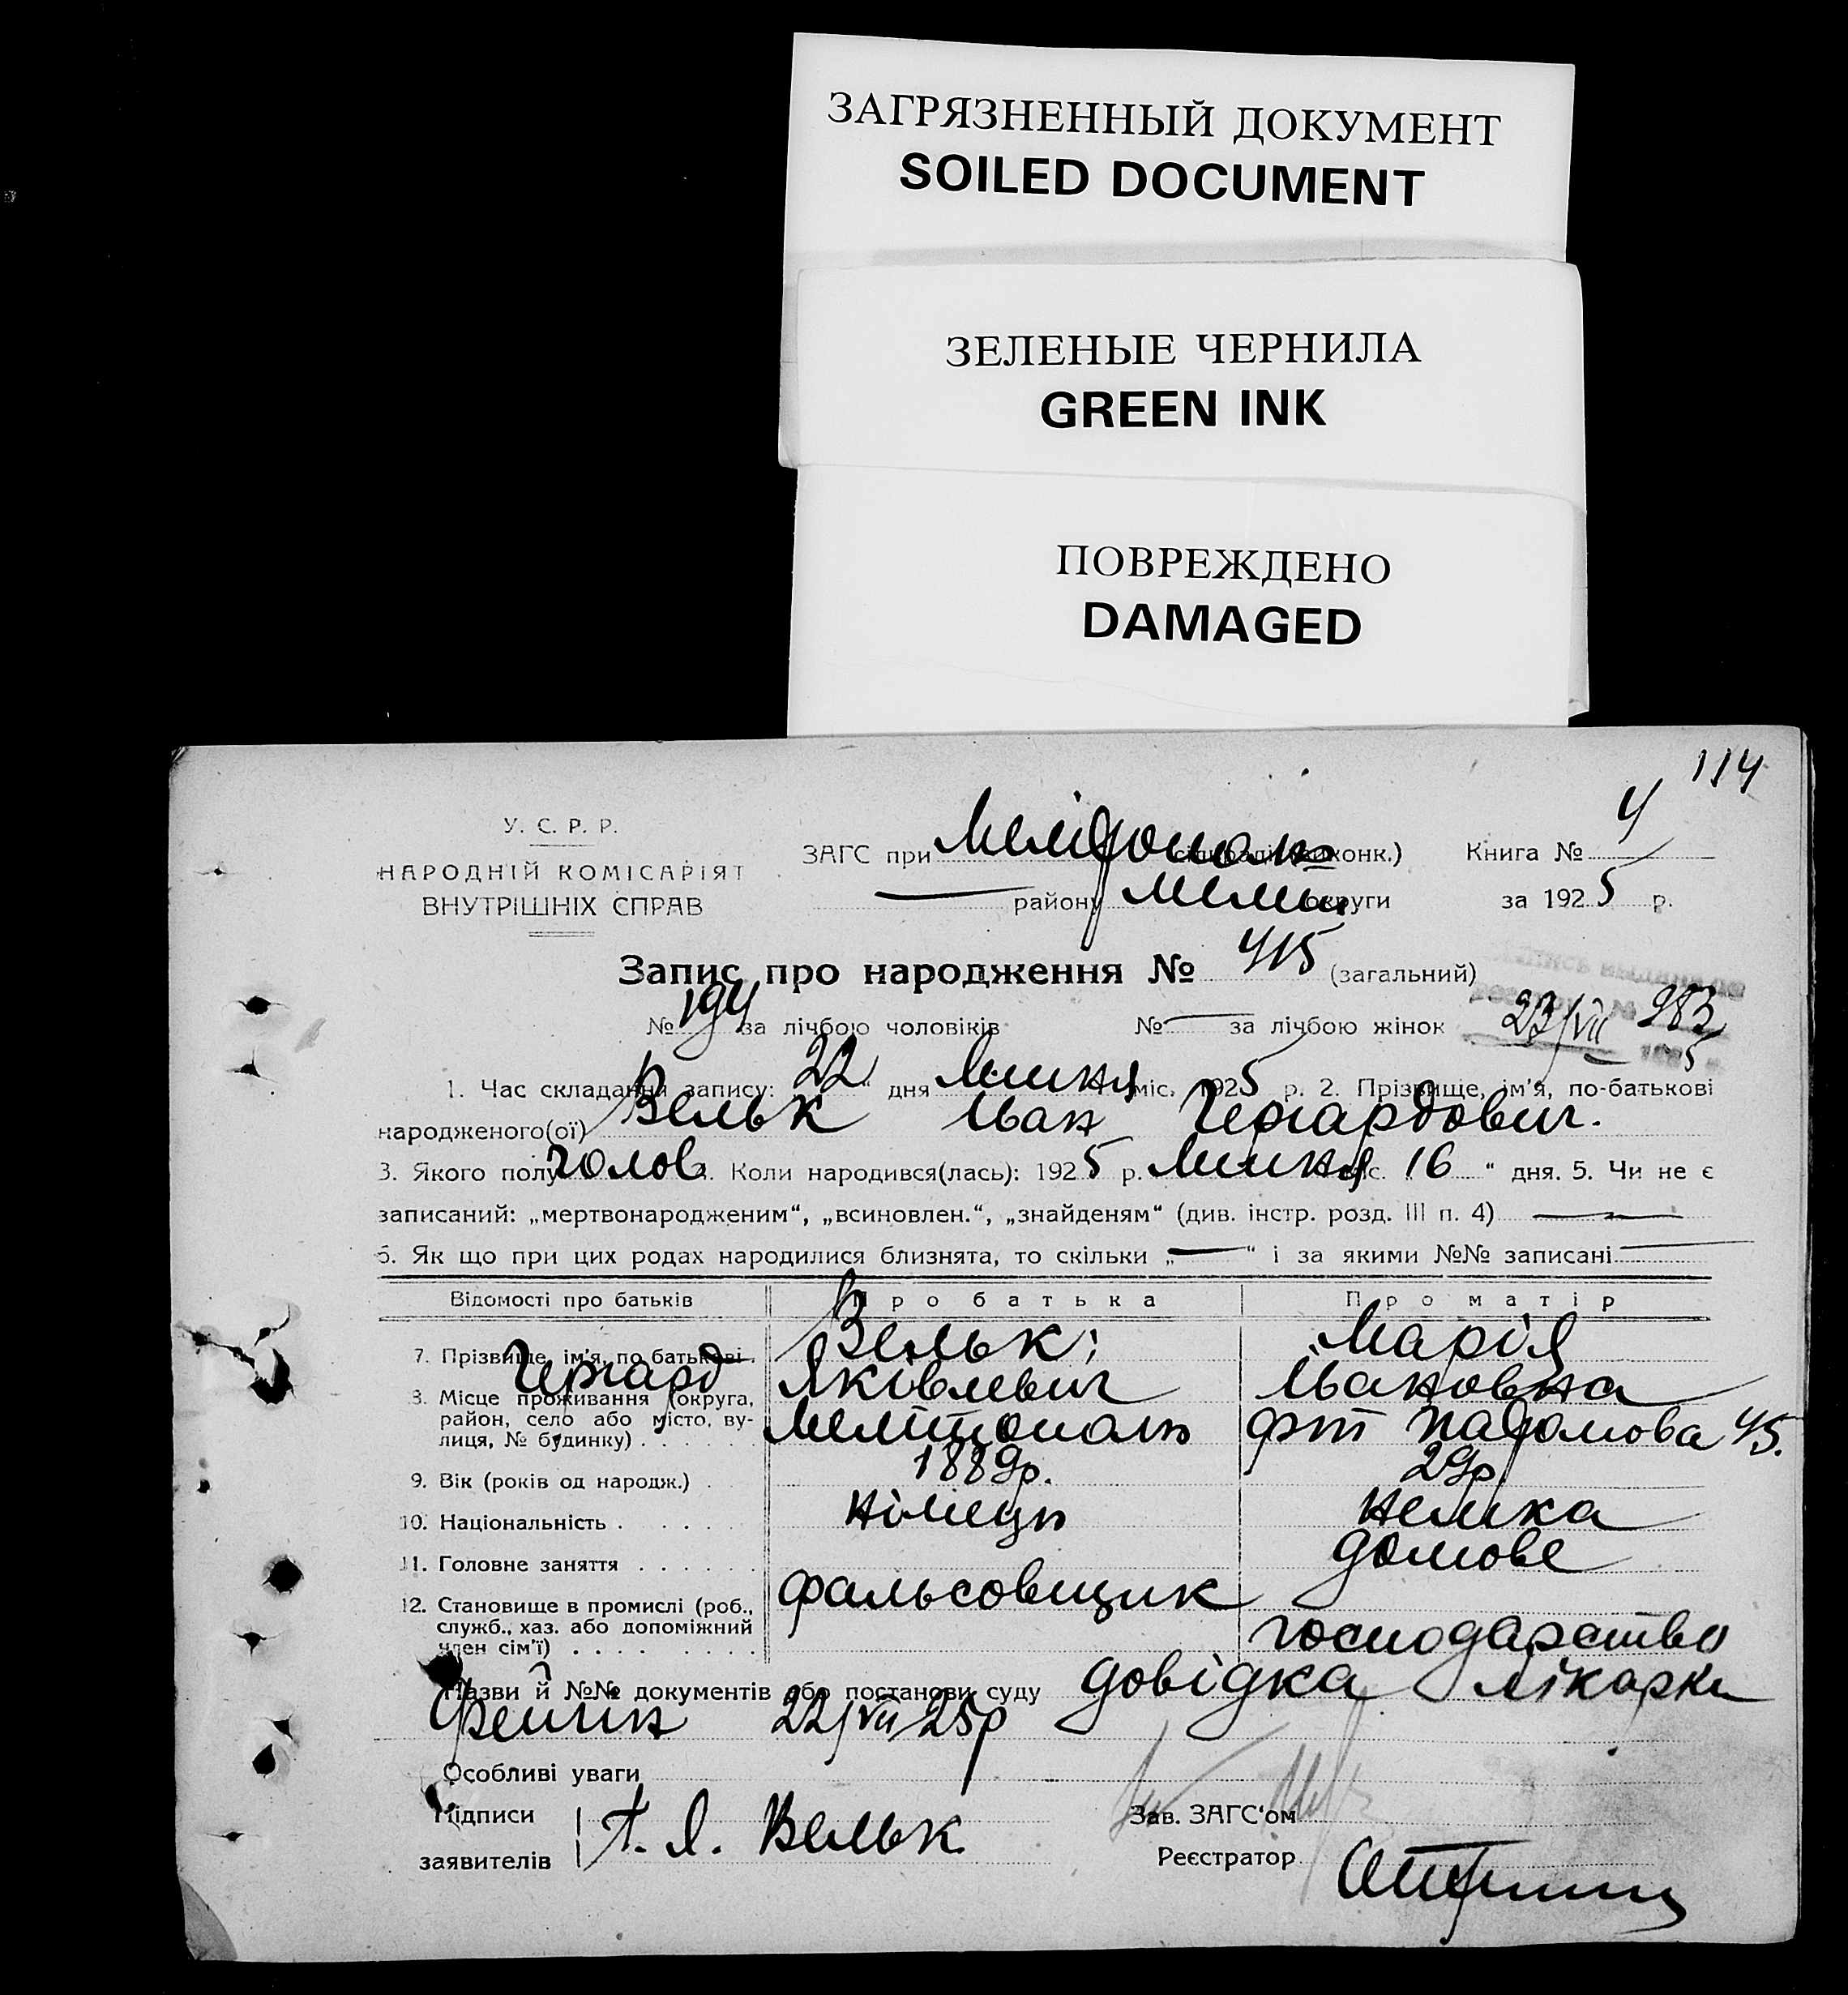 ЗАГРЯЗНЕННЫЙ ДОКУМЕНТ
SOILED DOCUMENT
ЗЕЛЕНЫЕ ЧЕРНИЛА
GREEN INK
ПОВРЕЖДЕНО
DAMAGED
114
У. С. Р. Р.
НАРОДНІЙ КОМІСАРІЯТ
ВНУТРІШНІХ СПРАВ
ЗАГС при Мелітополь (виконк.) Книга № 4
— району Мелит округи за 1925 р.
Запис про народження № 415 (загальний)
№ 194 за лічбою чоловіків № — за лічбою жінок 23/VII 283
5
1. Час складання запису: 22 " дня Липня міс. 1925 р. 2. Прізвище, ім'я, по-батькові
народженого(ої) Вельк Іван Герардович.
3. Якого полу чолов. Коли народився(лась): 1925 р. Липня міс. 16 " дня. 5. Чи не є
записаний: „мертвонародженим", „всиновлен.", „знайденям" (див. інстр. розд. III п. 4) —
6. Як що при цих родах народилися близнята, то скільки „—" і за якими №№ записані —
Відомості про батьків Про батька Про матір
7. Прізвище, ім'я, по батькові. Вельк; Марія
Герард Яковлевич Івановна
8. Місце проживання (округа,
район, село або місто, ву-
лиця, № будинку) Мелітополь 45.
9. Вік (років од народж.) 1889р. 29р.
10. Національність Німець Немка
11. Головне заняття домове
12. Становище в промислі (роб.,
служб., хаз. або допоміжний
член сім'ї) фальсовщик господарство
Назви й №№ документів або постанови суду довідка лікарки
22/VII 25р
Особливі уваги
Підписи
заявителів Г. Я. Вельк
Зав. ЗАГС'ом
Реєстратор